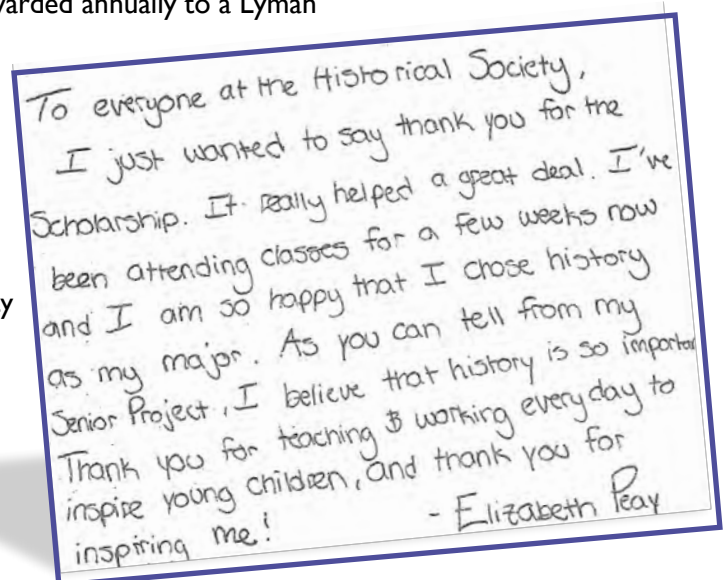 arded annually to a Lyman
To everyone at the Historical Society,
I just wanted to say thank you for the
Scholarship. It really helped a great deal. I've
been attending classes for a few weeks now
and I am so happy that I chose history
as my major. As you can tell from my
Senior Project, I believe that history is so importa
Thank you for teaching & working everyday to
inspire young children, and thank you for
inspiring me!
- Elizabeth Peay
y